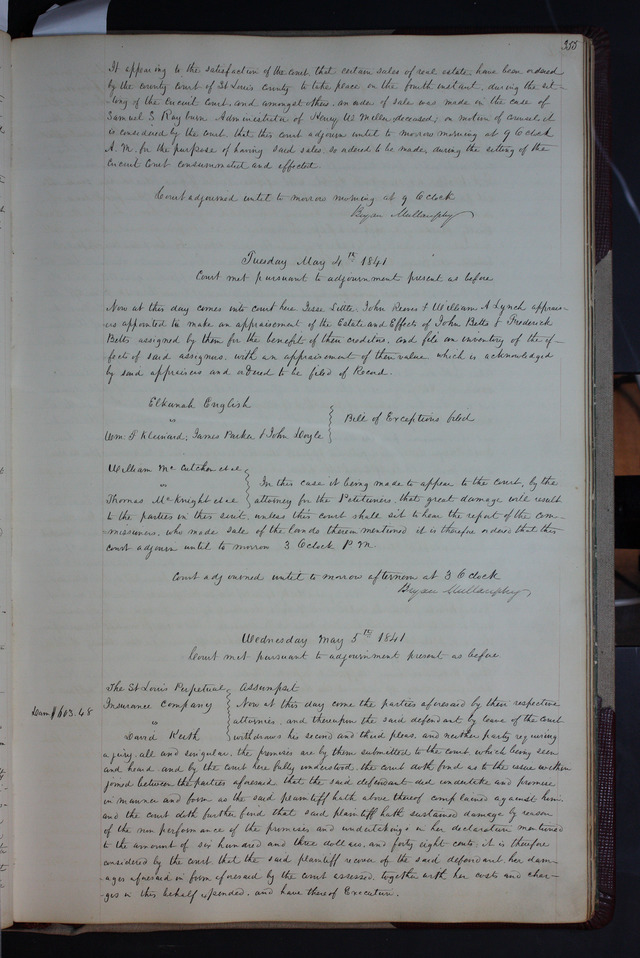 355
It appearing to the satisfaction of the court, that certain sales of real estate, have been ordered
by the county court of St Louis County to take place on the fourth instant, during the sit-
ting of the Circuit Court, and amongst others, an order of sale was made in the case of
Samuel S Rayburn Administrator of Henry W Miller deceased; on motion of counsel, it
is considered by the court, that this court adjourn until to morrow morning at 9 O'Clock
A. M. for the purpose of having said sales, so ordered to be made, during the setting of the
Circuit Court consummated and effected.
Court adjourned until to morrow morning at 9 O'clock
Bryan Mullanphy
Tuesday May 4th 1841
Court met pursuant to adjournment present as before
Now at this day comes into court here Jesse Little, John Reeves & William A Lynch apprais-
ers appointed to make an appraisement of the Estate and Effects of John Betts & Frederick
Betts assigned by them for the benefit of their creditors, and file an inventory of the ef-
fects of said assignors, with an appraisement of their value which is acknowledged
by said appraisers and ordered to be filed of Record.
Elkanah English
vs
Wm. P Kleinard, James Parker & John Hogle
Bill of Exceptions filed
William McCutchen et al
vs
Thomas McKnight et al
In this case it being made to appear to the court, by the
attorney for the Petitioners, that great damage will result
to the parties in this suit, unless this court shall sit to hear the report of the com-
missioners, who made sale of the lands therein mentioned it is therefore ordered that this
court adjourn until to morrow 3 O'Clock P M.
Court adjourned until to morrow afternoon at 3 O'clock
Bryan Mullanphy
Wednesday May 5th 1841
Court met pursuant to adjournment present as before
The St Louis Perpetual
Insurance Company
vs
David Keith
Assumpsit
Dam $603.48
Now at this day come the parties aforesaid by their respective
attornies, and thereupon the said defendant by leave of the court
withdraws his second and third pleas, and neither party requiring
a jury, all and singular, the premises are by them submitted to the court, which being seen
and heard and by the court here fully understood, the court doth find as to the issue within
joined between the parties aforesaid that the said defendant did undertake and promise
in manner and form as the said plaintiff hath above thereof complained against him,
and the court doth further find that said plaintiff hath sustained damage by reason
of the non performance of the promises and undertakings in her declaration mentioned
to the amount of six hundred and three dollars, and forty eight cents, it is therefore
considered by the court that the said plaintiff recover of the said defendant, her dam-
ages aforesaid in form aforesaid by the court assessed, together with her costs and char-
ges in this behalf expended, and have thereof Execution.